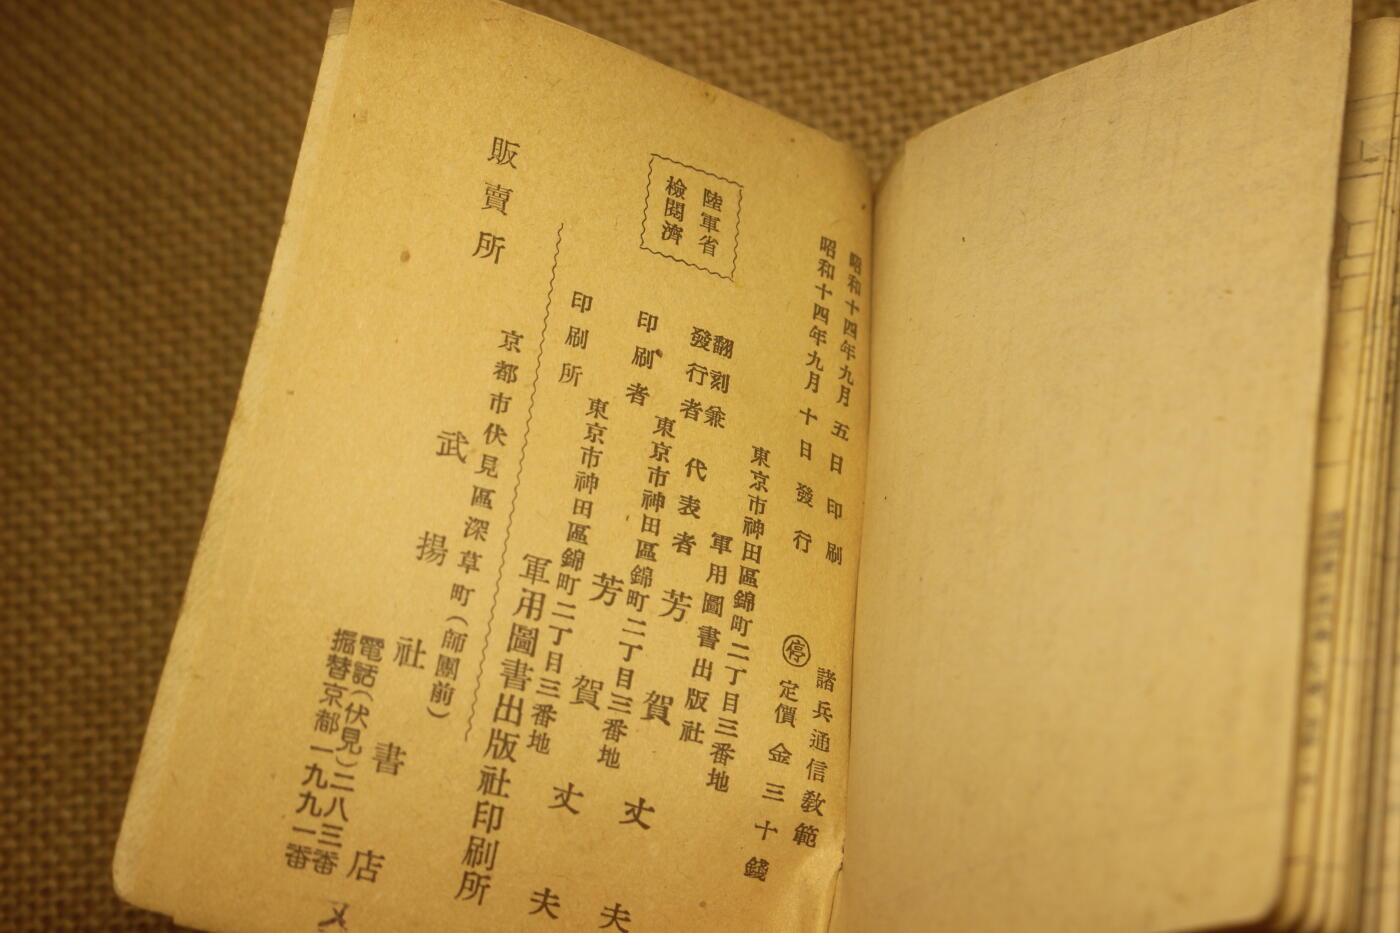 昭和十四年九月五日印刷
昭和十四年九月十日發行
諸兵通信教範
停 定價金三十錢
陸軍省
檢閱濟
東京市神田區錦町二丁目三番地
軍用圖書出版社
翻刻兼
發行者 代表者 芳賀丈夫
東京市神田區錦町二丁目三番地
印刷者 芳賀丈夫
東京市神田區錦町二丁目三番地
印刷所 軍用圖書出版社印刷所
販賣所 京都市伏見區深草町(師團前)
武揚社書店
電話(伏見)二八三番
振替京都一九九一番